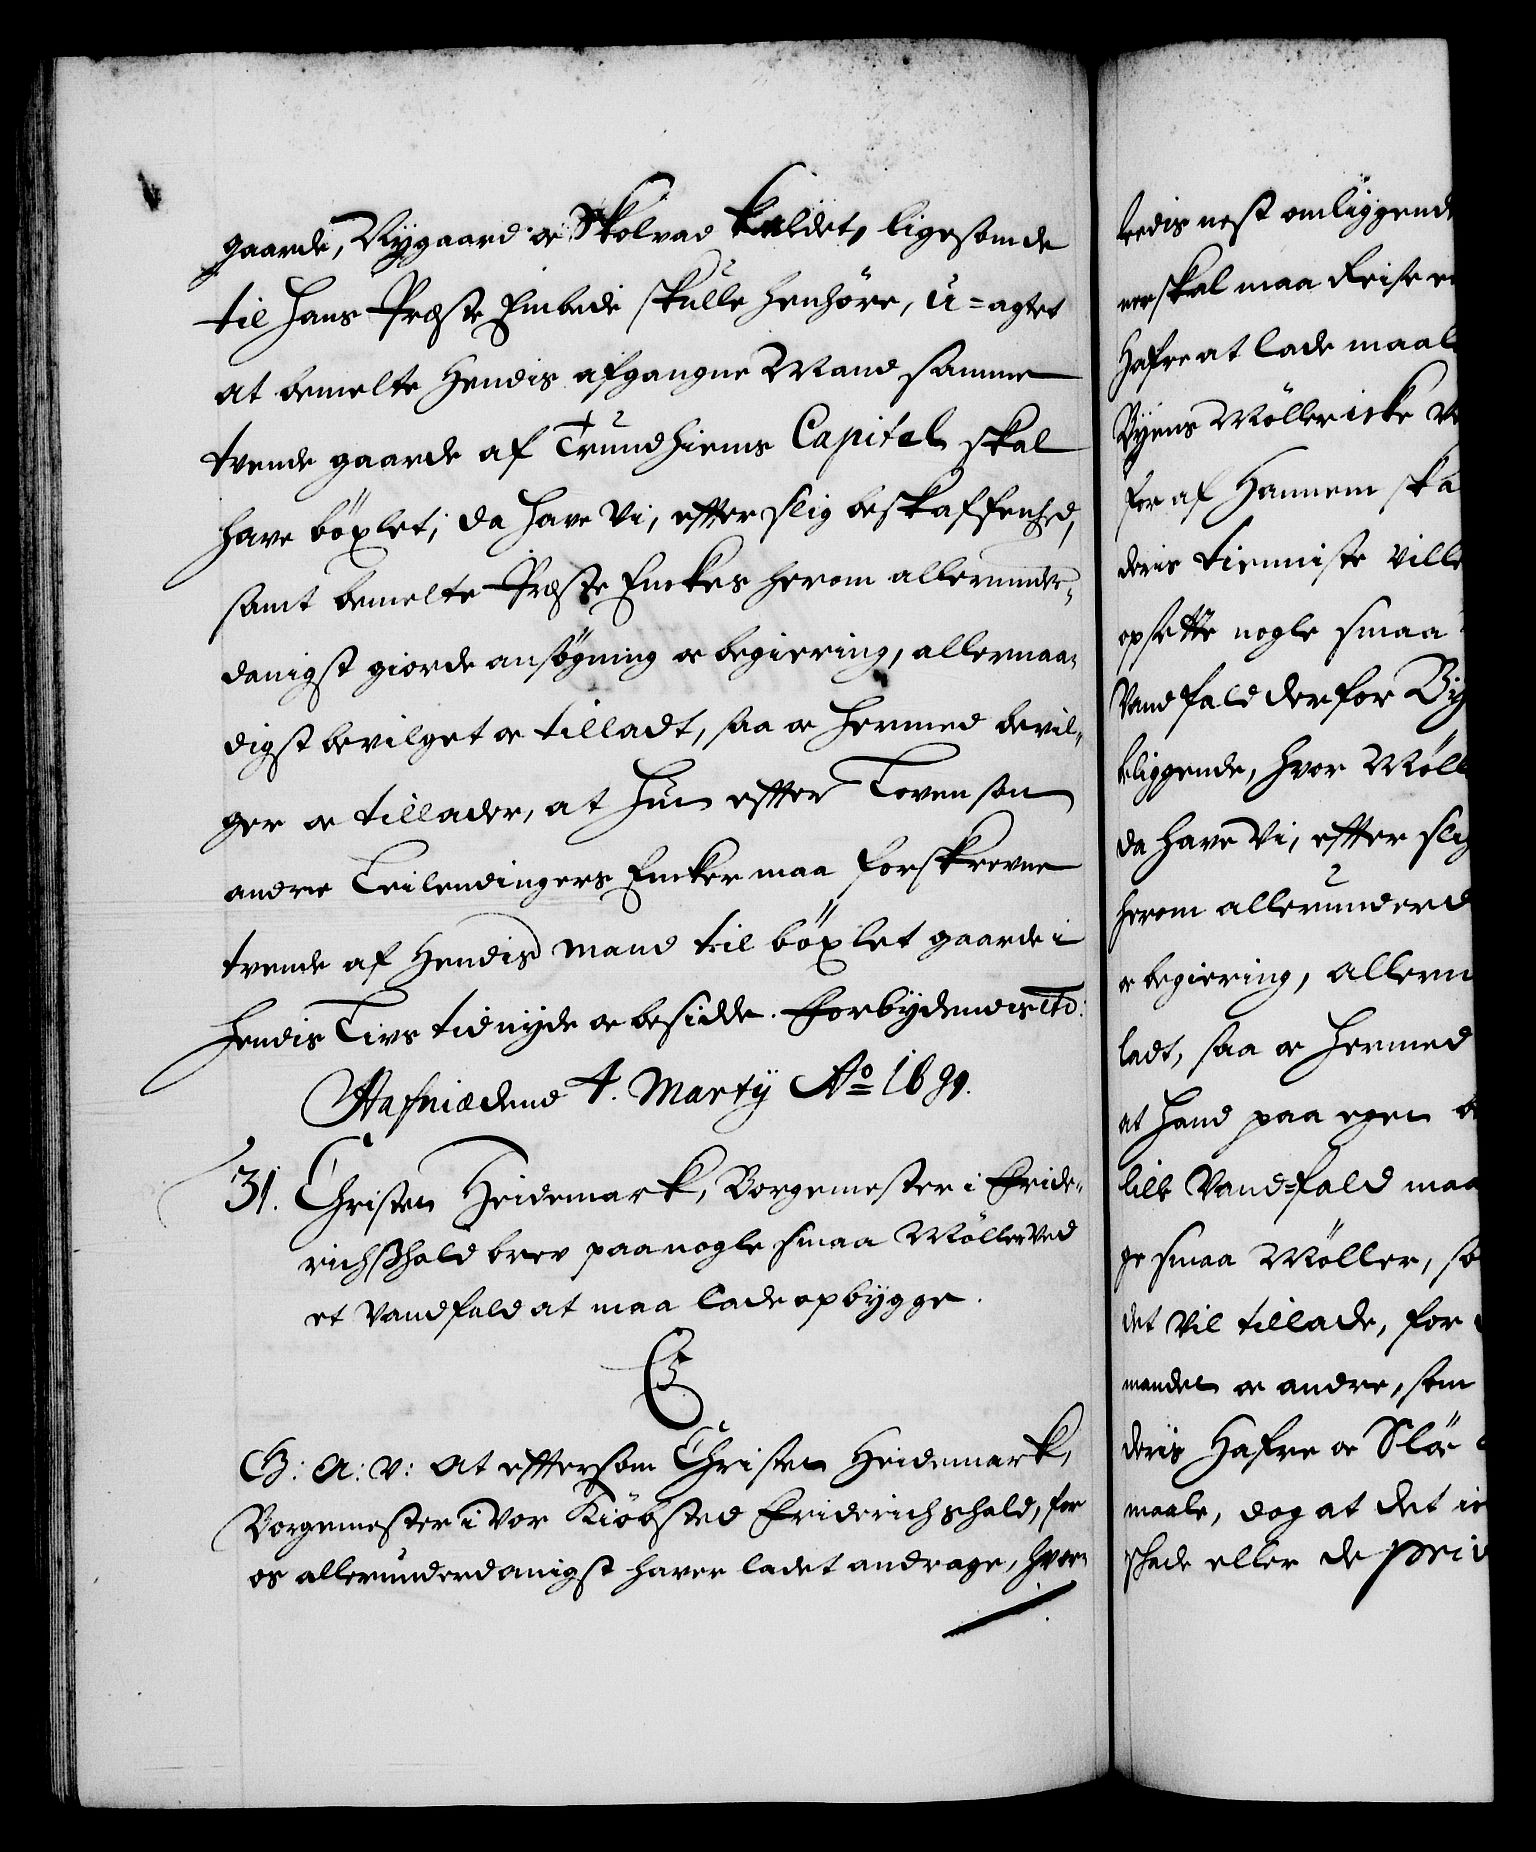 gaarde, Nygaard oc Skolvad kaldet, ligesom de
til hans Præste Embede skulle henhöre, u=agtet
at bemelte Hendis afgangne Mand samme
tvende gaarde af Trundhiems Capitel skal
have böxlet; da have Vi, effter slig beskaffenhed,
samt bemelte Præste Enckes herom allerunder-
danigst giorde ansögning oc begiering, allernaa-
digst bevilget oc tilladt, saa oc hermed bevil-
ger oc tillader, at hun effter Loven som
andre Leilendingers Encker maa forskrevne
tvende af Hendis Mand til böxlet gaarde i
hendis Livs tid nyde oc besidde. Forbydendis etc:
Hafniæ dend 4. Martij Ao 1691.
31. Christen Heidemark, Borgemester i Fride-
richshald brev paa nogle smaa Møller ved
et Vandfald at maa lade opbygge.
C5
G: A: V: At efftersom Christen Heidemark,
Borgemester i Vor Kiöbsted Friderichshald, for
os allerunderdanigst haver ladet andrage, hvor-
ledis nest omliggend
nerskal maa Reise
Hafre at lade maal
Byens Møller icke
for af Hannem ska
deris tienniste ville
opsette nogle smaa
Vandfald derfor By
liggende, hvor Møll
da have Vi, effter slig
herom allerunderd
oc begiering, allern
ladt, saa oc hermed
at hand paa egen
lille Vand=fald maa
ge smaa Møller, so
det Vil tillade, for
manden oc andre, som
deris Hafre oc
maale, dog at det ic
skade eller de priv